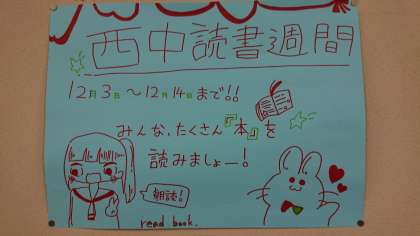 西中読書週間
12月3日~12月14日まで!!
みんな、たくさん『本』を
読みましょー!
朝読!
read book.